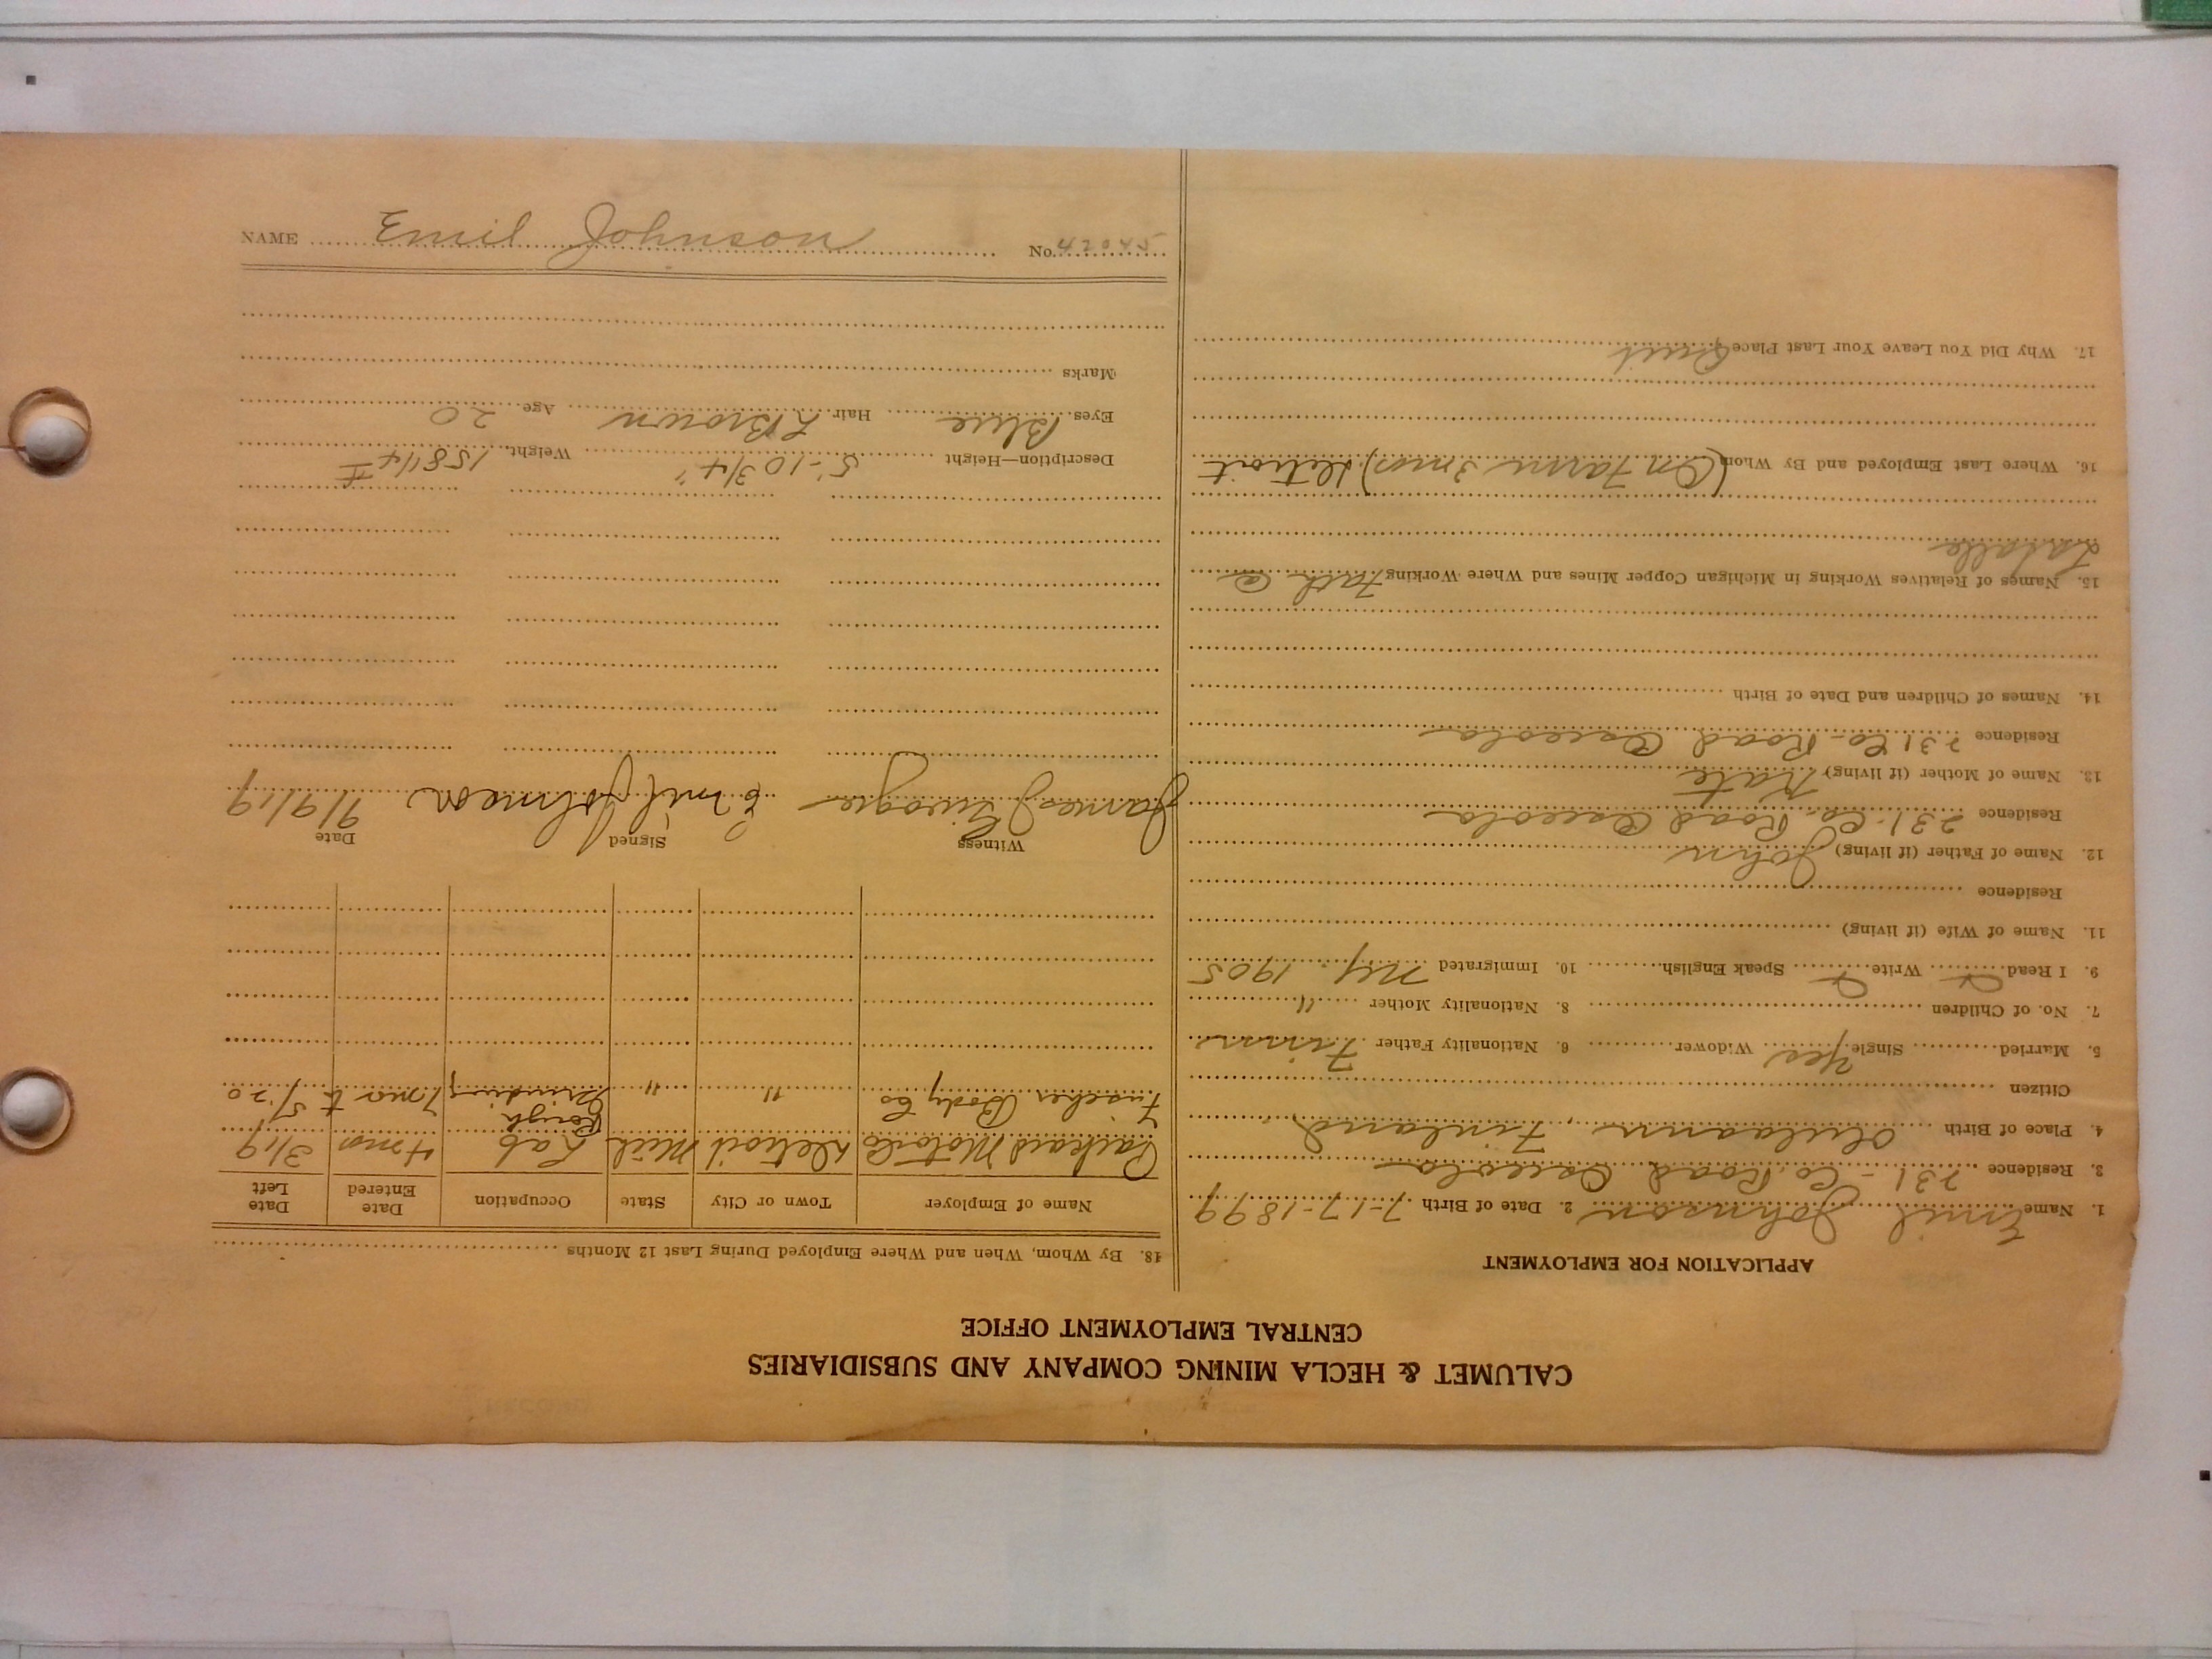 CALUMET & HECLA MINING COMPANY AND SUBSIDIARIES
CENTRAL EMPLOYMENT OFFICE
APPLICATION FOR EMPLOYMENT
1. Name Emil Johnson 2. Date of Birth 7-17-1899
3. Residence 231-Co. Road Osceola
4. Place of Birth Finland
Citizen
5. Married Single Yes Widower 6. Nationality Father Finn
7. No. of Children 8. Nationality Mother "
9. I Read Write Speak English 10. Immigrated NY. 1905
11. Name of Wife (if living)
Residence
12. Name of Father (if living) John
Residence 231-Co. Road Osceola
13. Name of Mother (if living) Kate
Residence 231 Co. Road Osceola
14. Names of Children and Date of Birth
15. Names of Relatives Working in Michigan Copper Mines and Where Working Fath @
LaSalle
16. Where Last Employed and By Whom (On Farm 3 mos) Detroit
17. Why Did You Leave Your Last Place Quit
18. By Whom, When and Where Employed During Last 12 Months
Name of Employer Town or City State Occupation Date Entered Date Left
Packard Motor Co Detroit Mich Lab 4 mos 3/19
Fischer Body Co " " Rough Grinding 7 mos to 5/20
Witness Signed Date
James J Emil Johnson 9/9/19
Description—Height 5-10 3/4" Weight 158 1/4 #
Eyes Blue Hair L Brown Age 20
Marks
NAME Emil Johnson No. 42045